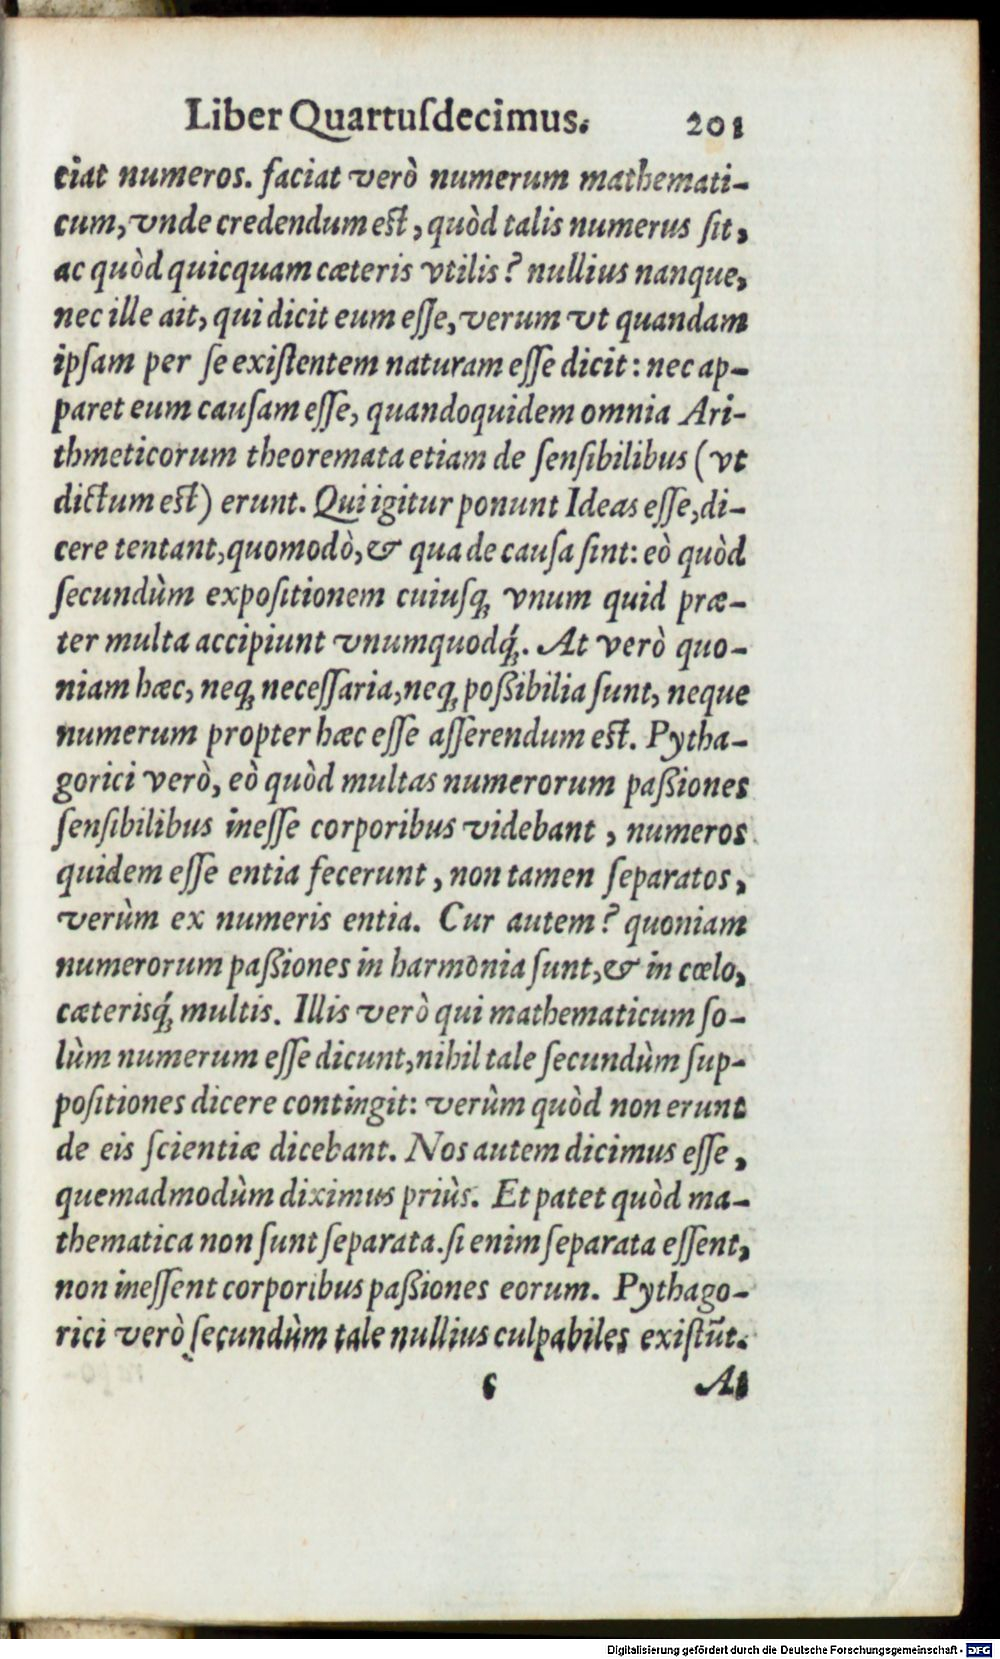 Liber Quartuſdecimus. 201
ciat numeros. faciat verò numerum mathemati-
cum, vnde credendum est, quòd talis numerus ſit,
ac quòd quicquam cæteris vtilis? nullius nanque,
nec ille ait, qui dicit eum eſſe, verum vt quandam
ipſam per ſe exiſtentem naturam eſſe dicit: nec ap-
paret eum cauſam eſſe, quandoquidem omnia Ari-
thmeticorum theoremata etiam de ſenſibilibus (vt
dictum est) erunt. Qui igitur ponunt Ideas eſſe, di-
cere tentant, quomodò, & qua de cauſa ſint: eò quòd
ſecundùm expoſitionem cuiuſq; vnum quid præ-
ter multa accipiunt vnumquodq́;. At verò quo-
niam hæc, neq; neceſſaria, neq; poßibilia ſunt, neque
numerum propter hæc eſſe aſſerendum est. Pytha-
gorici verò, eò quòd multas numerorum paßiones
ſenſibilibus ineſſe corporibus videbant, numeros
quidem eſſe entia fecerunt, non tamen ſeparatos,
verùm ex numeris entia. Cur autem? quoniam
numerorum paßiones in harmonia ſunt, & in cœlo,
cæterisq́; multis. Illis verò qui mathematicum ſo-
lùm numerum eſſe dicunt, nihil tale ſecundùm ſup-
poſitiones dicere contingit: verùm quòd non erunt
de eis ſcientiæ dicebant. Nos autem dicimus eſſe,
quemadmodùm diximus priùs. Et patet quòd ma-
thematica non ſunt ſeparata. ſi enim ſeparata eſſent,
non ineſſent corporibus paßiones eorum. Pythago-
rici verò ſecundùm tale nullius culpabiles exiſtūt.
At
Digitalisierung gefördert durch die Deutsche Forschungsgemeinschaft - DFG